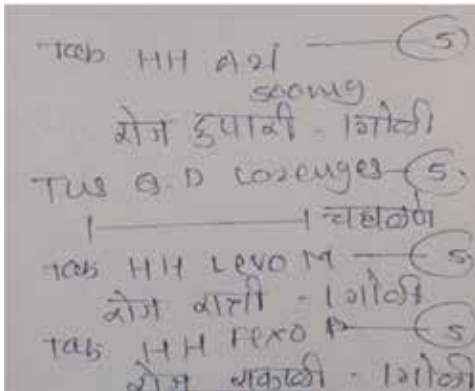 Tab HH — 5
500mg
रोज दुपारी - 1 गोळी
Lozenges — 5
चघळणे
Tab HH Levo M — 5
रोज रात्री - 1 गोळी
Tab HH Fexo — 5
रोज सकाळी - 1 गोळी